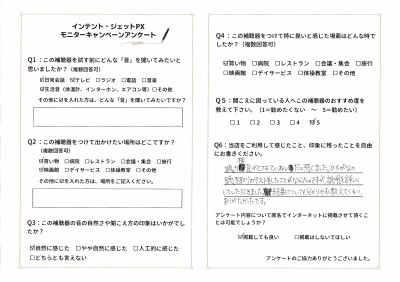 インテント・ジェットPX
モニターキャンペーンアンケート
Q1：この補聴器を試す前にどんな「音」を聞いてみたいと
思いましたか？（複数回答可）
☑日常会話 ☑テレビ □ラジオ □電話 □音楽
☑生活音（体温計、インターホン、エアコン等）□その他
その他に☑を入れた方は、どんな「音」を聞いてみたいですか？
Q2：この補聴器をつけて出かけたい場所はどこですか？
（複数回答可）
☑買い物 □病院 □レストラン □会議・集会 □旅行
☑映画館 □デイサービス □体操教室 □その他
その他に☑を入れた方は、場所をご記入ください。
Q3：この補聴器の音の自然さや聞こえ方の印象はいかがでし
たか？
☑自然に感じた □やや自然に感じた □人工的に感じた
□どちらとも言えない
Q4：この補聴器をつけて特に良いと感じた場面はどんな時で
したか？（複数回答可）
☑買い物 □病院 □レストラン □会議・集会 □旅行
□映画館 □デイサービス □体操教室 □その他
Q5：聞こえに困っている人へこの補聴器のおすすめ度を
教えて下さい。（1＝勧めたくない ～ 5＝勧めたい）
□1 □2 □3 □4 ☑5
Q6：当店をご利用して感じたこと、印象に残ったことを自由
にお書きください。
していただきました。
ありがたかったです。
アンケート内容について匿名でインターネットに掲載させて頂くこ
とは可能でしょうか？
☑掲載しても良い □掲載はしないでほしい
アンケートのご協力ありがとうございました。